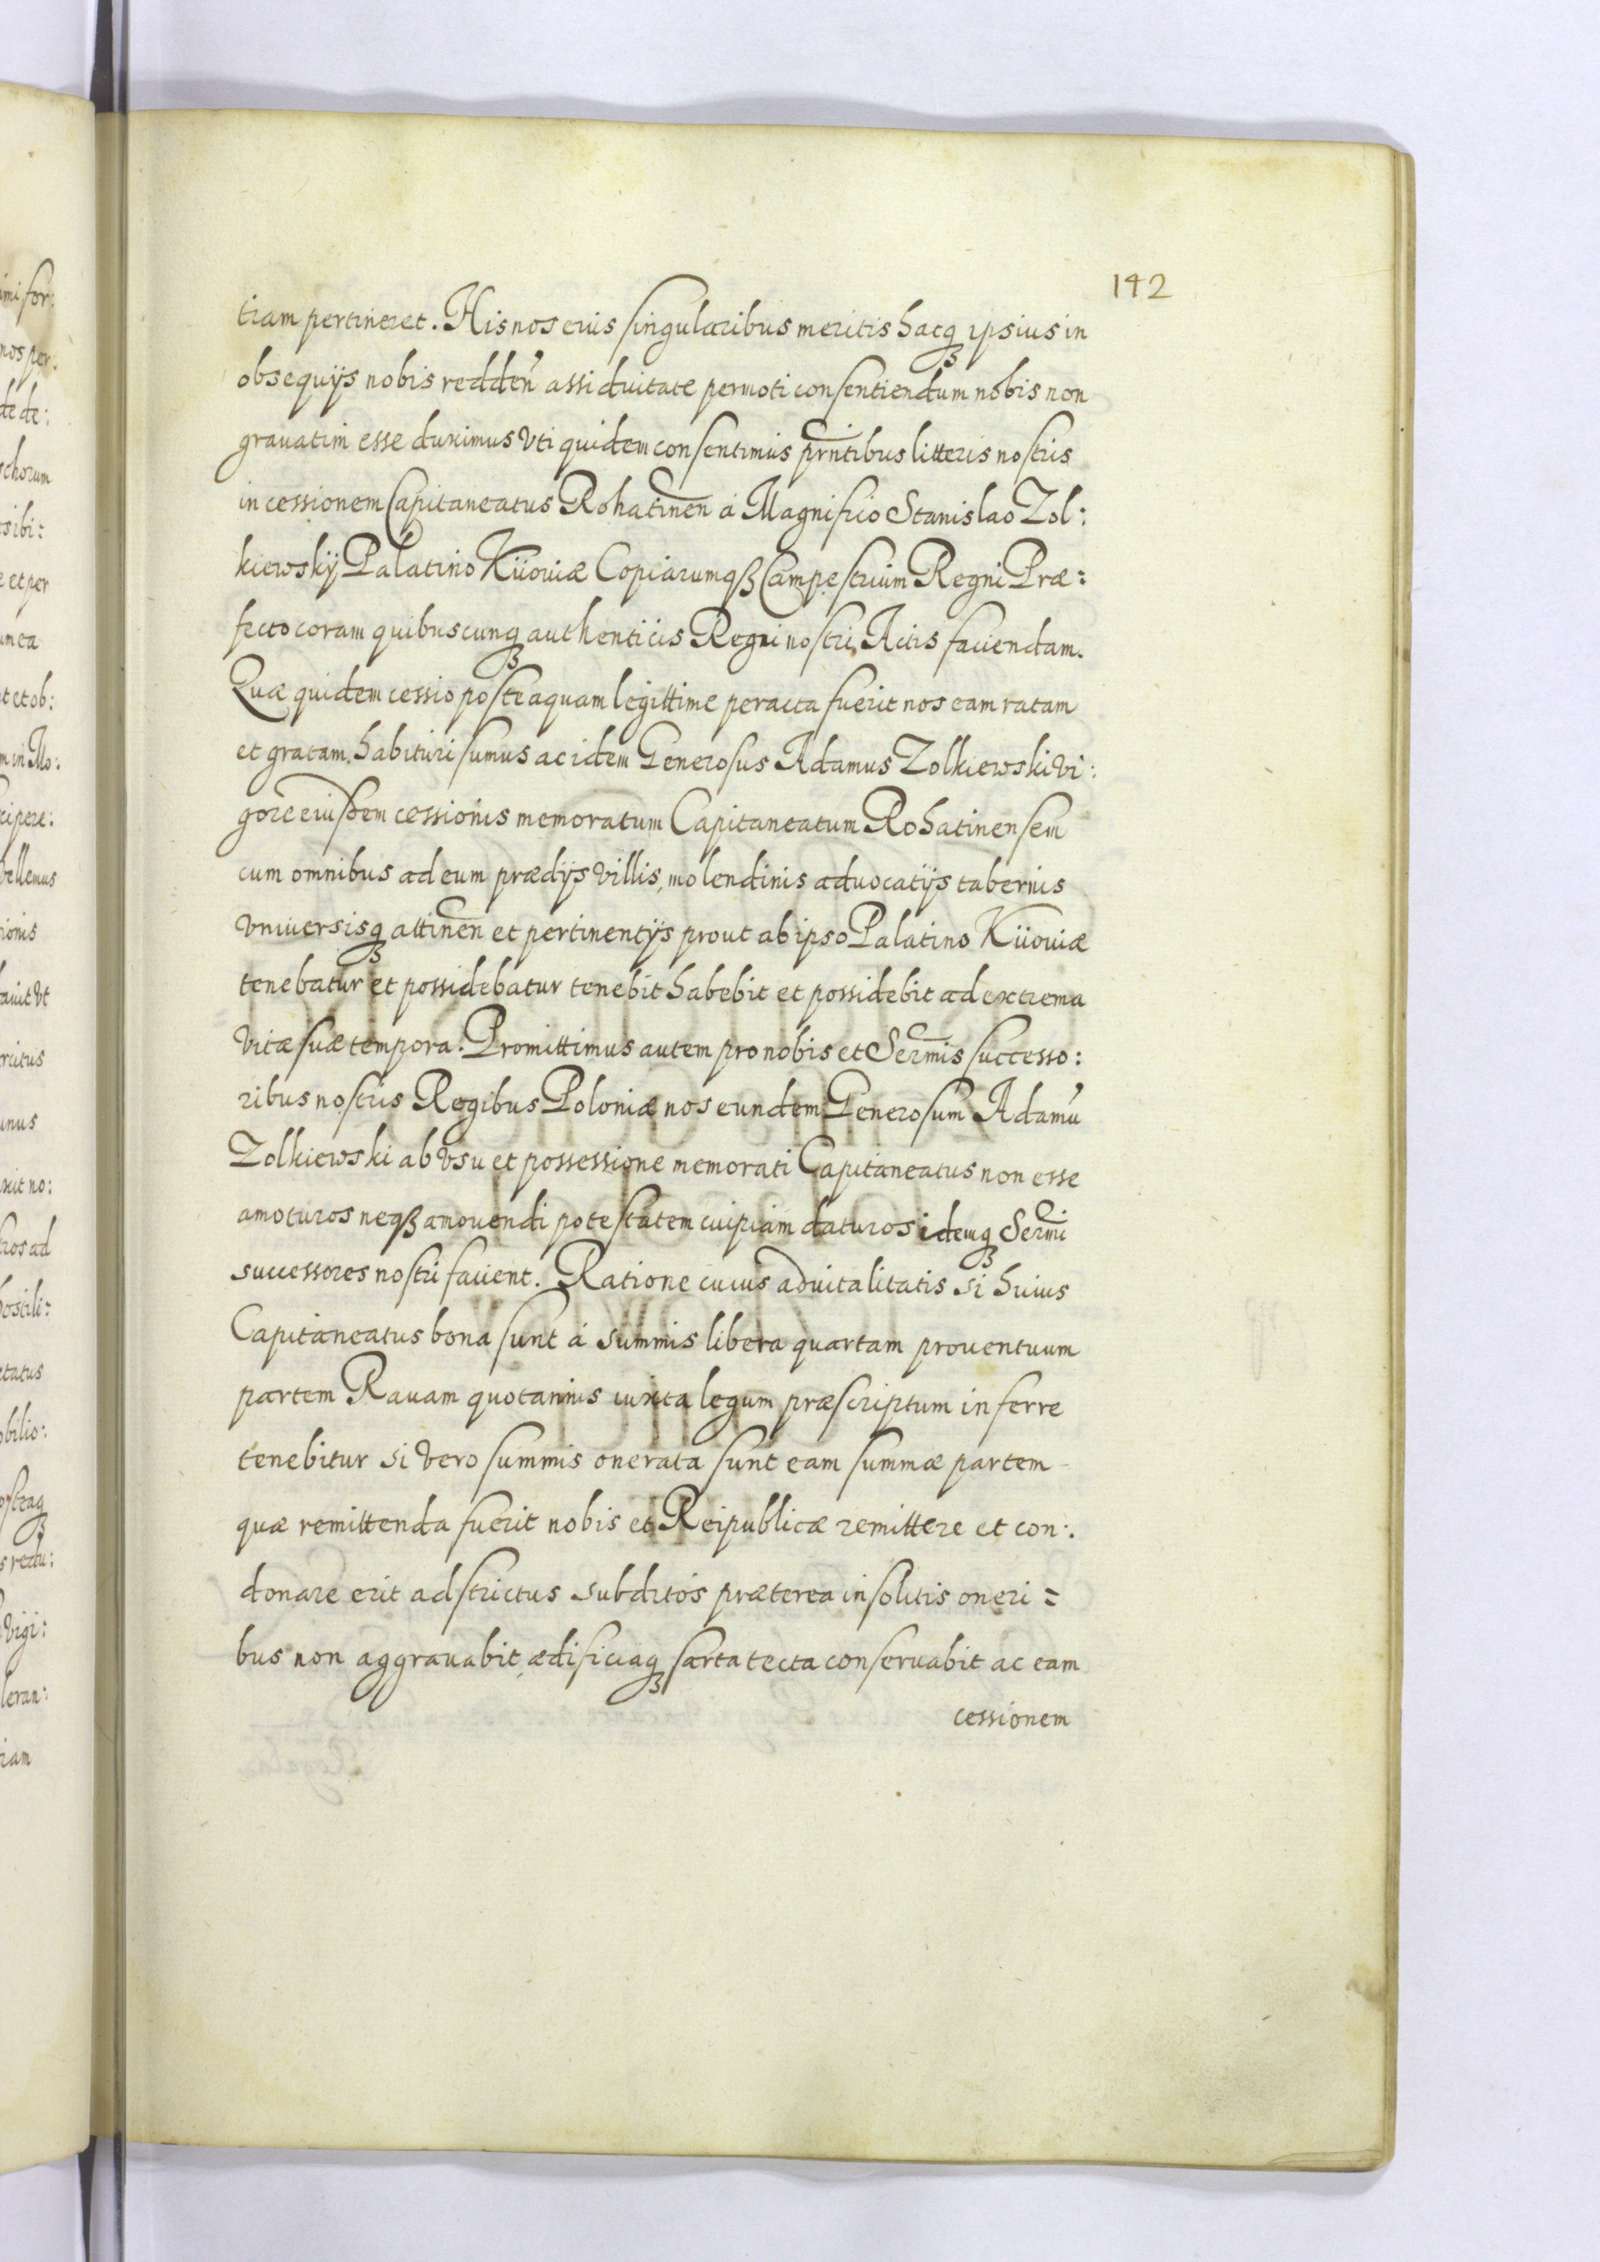 142
tiam pertineret. His nos eius singularibus meritis hacq3 ipsius in
obsequijs nobis redden̄ assiduitate permoti consentiendum nobis non
grauatim esse duximus vti quidem consentimus prn̄tibus litteris nostris
in cessionem Capitaneatus Rohatinen̄ á Magnifico Stanislao Zol:
kiewskÿ Palatino Kÿouiæ Copiarumqß Campestrium Regni Præ:
fecto coram quibuscunq3 authenticis Regni nostri Actis faciendam.
Quæ quidem cessio posteaquam legittime peracta fuerit nos eam ratam
et gratam habituri sumus ac idem Generosus Adamus Zolkiewski vi:
gore eiusdem cessionis memoratum Capitaneatum Rohatinensem
cum omnibus ad eum prædijs villis, molendinis aduocatijs tabernis
vniuersisq3 attinen̄ et pertinentijs prout ab ipso Palatino Kÿouiæ
tenebatur et possidebatur tenebit habebit et possidebit ad extrema
vitæ suæ tempora. Promittimus autem pro nobis et Serm̄is successo:
ribus nostris Regibus Poloniæ nos eundem Generosum Adamū
Zolkiewski ab vsu et possessione memorati Capitaneatus non esse
amoturos neqß amouendi potestatem cuipiam daturos idemq3 Serm̄i
successores nostri facient. Ratione cuius aduitalitatis si huius
Capitaneatus bona sunt á summis libera quartam prouentuum
partem Rauam quotannis iuxta legum præscriptum inferre
tenebitur si vero summis onerata sunt eam summæ partem
quæ remittenda fuerit nobis et Reipublicæ remittere et con:
donare erit adstrictus subditos præterea insolitis oneri=
bus non aggrauabit, ædificiaq3 sarta tecta conseruabit ac eam
cessionem